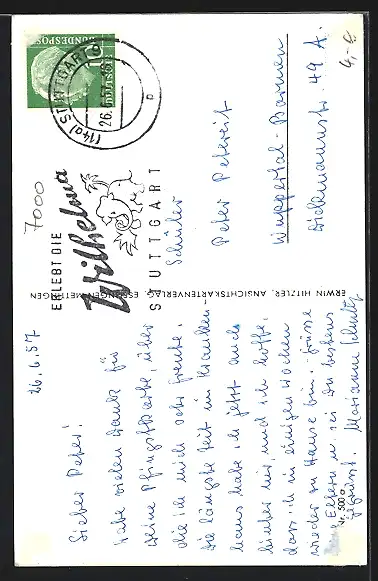 26.6.57
Lieber Peter!
Habe vielen Dank für
Deine Pfingstkarte, über
die ich mich sehr freute.
Die längste Zeit im Kranken
haus habe ich jetzt auch
hinter mir, und ich hoffe,
dass ich in einigen Wochen
wieder zu Hause bin. Grüsse
Eltern u. sei Du bestens
gegrüsst. Marianne
Nr. 500 a
ERWIN HITZLER, ANSICHTSKARTENVERLAG, ESSLINGEN-METTINGEN
7000
ERLEBT DIE
Wilhelma
STUTTGART
(14a) STUTTGART 9
26.6.57
DEUTSCHE
BUNDESPOST
10
Schüler
Peter Petereit
Wuppertal-Barmen
49 A.
4,-